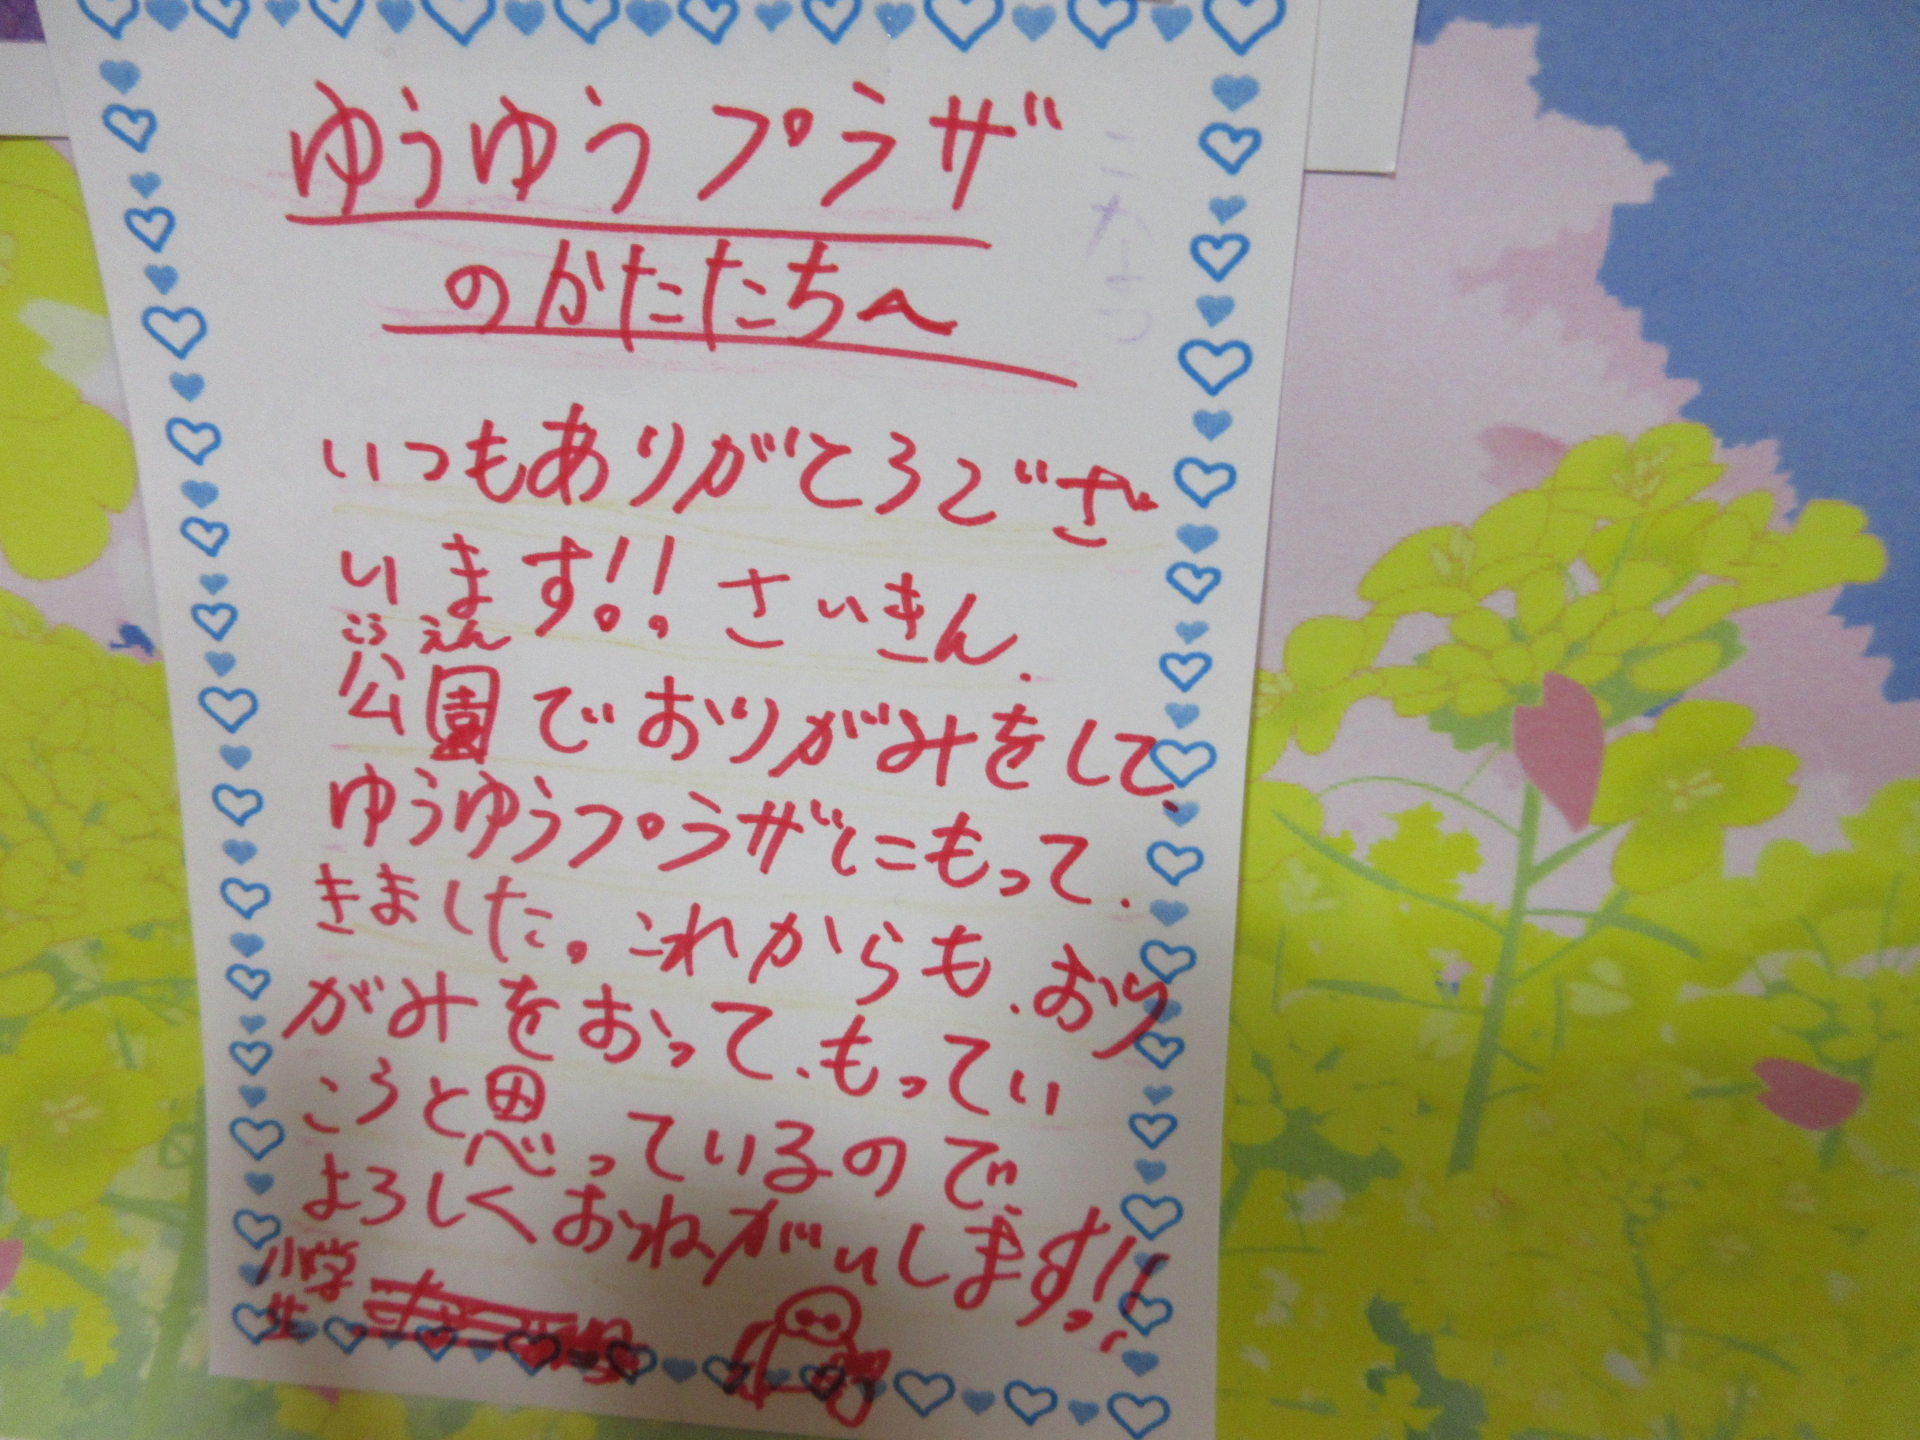 ゆうゆうプラザ
のかたたちへ
いつもありがとうござ
います!! さいきん、
こうえん
公園でおりがみをして、
ゆうゆうプラザにもって、
きました。これからも、おり
がみをおって、もってい
こうと思っているので、
よろしくおねがいします!!
小学
生